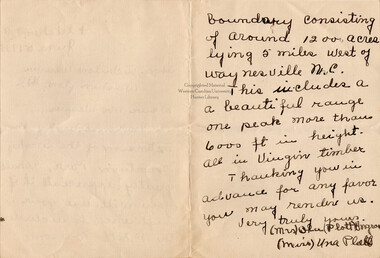 Boundary consisting
of around 1200 acres
lying 5 miles west of
Waynesville N.C.
Copyrighted Material
Western Carolina University
Hunter Library
This includes a
a beautiful range
one peak more than
6000 ft in height.
all in Virgin timber
Thanking you in
advance for any favor
you may render us.
Very truly yours.
(Mrs)
(Miss) Una Plott